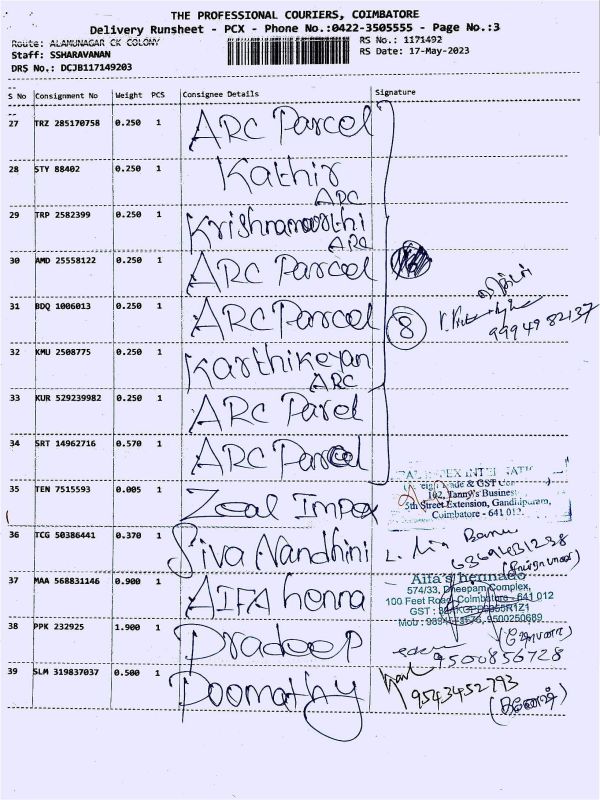 THE PROFESSIONAL COURIERS, COIMBATORE
Delivery Runsheet - PCX - Phone No.:0422-3505555 - Page No.:3
Route: ALAMUNAGAR CK COLONY
RS No.: 1171492
Staff: SSHARAVANAN
RS Date: 17-May-2023
DRS No.: DCJB117149203
S No Consignment No Weight PCS Consignee Details Signature
27 TRZ 285170758 0.250 1 ARC Parcel
28 STY 88402 0.250 1 Kathir
ARC
29 TRP 2582399 0.250 1 Krishnamoorthi
ARC
30 AMD 25558122 0.250 1 ARC Parcel
31 BDQ 1006013 0.250 1 ARC Parcel
8
9994982137
32 KMU 2508775 0.250 1 Karthikeyan
ARC
33 KUR 529239982 0.250 1 ARC Parel
34 SRT 14962716 0.570 1 ARC Parcel
35 TEN 7515593 0.005 1 Zeal Impex
102, Tanny's Business
5th Street Extension, Gandhipuram,
Coimbatore - 641 012.
36 TCG 50386441 0.370 1 Siva Nandhini
37 MAA 568831146 0.900 1 AIFA henna
574/33, Dheepam Complex,
100 Feet Road, Coimbatore - 641 012
38 PPK 232925 1.900 1 Pradeep
9500856728
39 SLM 319837037 0.500 1 Poomathy
9543452793